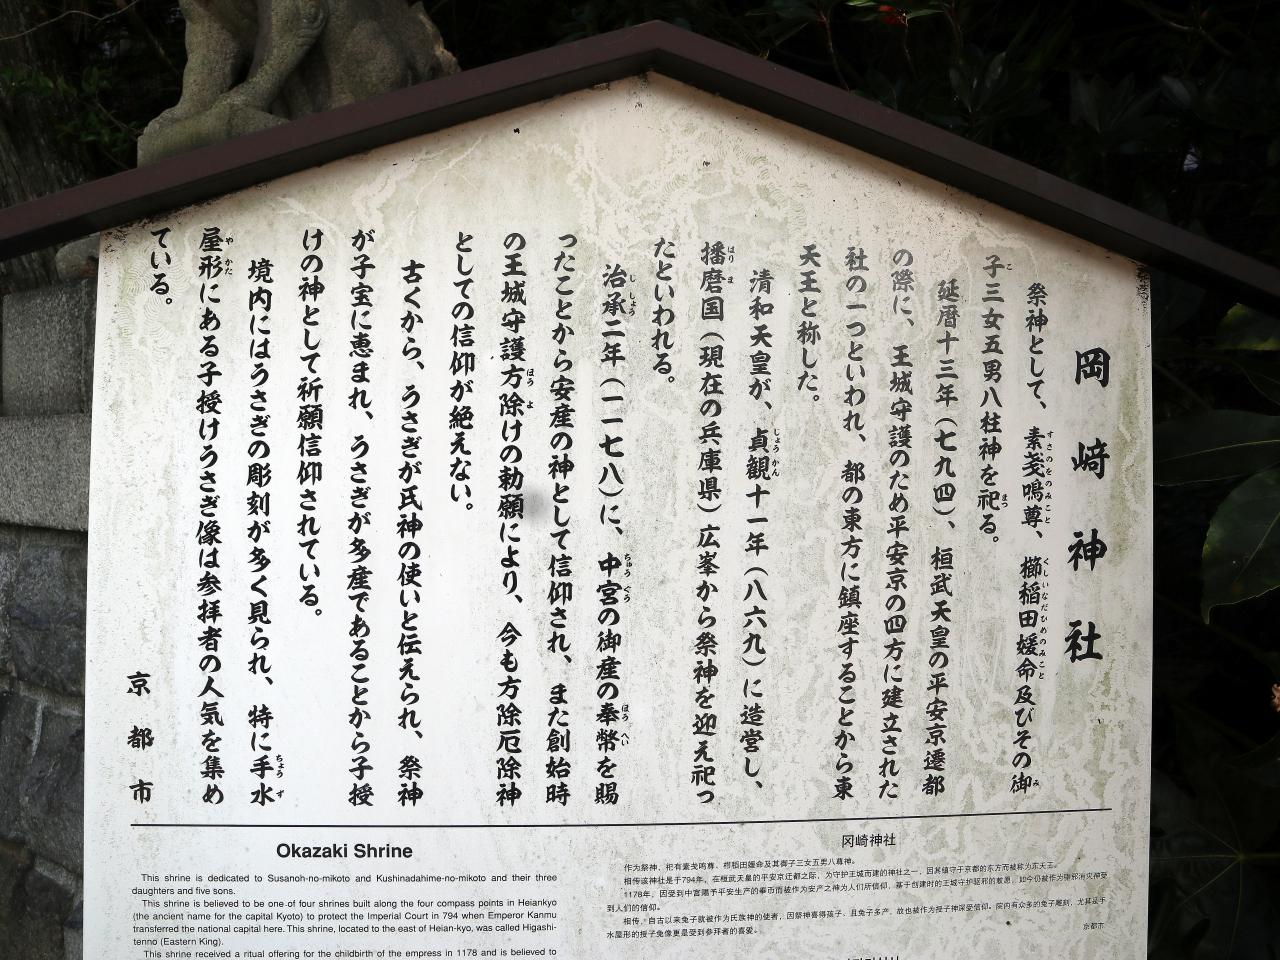 岡﨑神社
祭神として、素戔嗚尊、櫛稲田媛命及びその御
子三女五男八柱神を祀る。
延暦十三年（七九四）、桓武天皇の平安京遷都
の際に、王城守護のため平安京の四方に建立された
社の一つといわれ、都の東方に鎮座することから東
天王と称した。
清和天皇が、貞観十一年（八六九）に造営し、
播磨国（現在の兵庫県）広峯から祭神を迎え祀っ
たといわれる。
治承二年（一一七八）に、中宮の御産の奉幣を賜
ったことから安産の神として信仰され、また創始時
の王城守護方除けの勅願により、今も方除厄除神
としての信仰が絶えない。
古くから、うさぎが氏神の使いと伝えられ、祭神
が子宝に恵まれ、うさぎが多産であることから子授
けの神として祈願信仰されている。
境内にはうさぎの彫刻が多く見られ、特に手水
屋形にある子授けうさぎ像は参拝者の人気を集め
ている。
京都市
Okazaki Shrine
This shrine is dedicated to Susanoh-no-mikoto and Kushinadahime-no-mikoto and their three
daughters and five sons.
This shrine is believed to be one of four shrines built along the four compass points in Heiankyo
(the ancient name for the capital Kyoto) to protect the Imperial Court in 794 when Emperor Kanmu
transferred the national capital here. This shrine, located to the east of Heian-kyo, was called Higashi-
tenno (Eastern King).
This shrine received a ritual offering for the childbirth of the empress in 1178 and is believed to
冈崎神社
作为祭神，祀有素戋鸣尊、栉稻田媛命及其御子三女五男八尊神。
相传该神社是于794年，在桓武天皇的平安京迁都之际，为守护王城而建的神社之一，因其镇守于京都的东方而被称为东天王。
1178年，因受到中宫赐予平安生产的奉币而被作为安产之神为人们所信仰，基于创建时的王城守护驱邪的敕愿，如今仍被作为驱邪消灾神受
到人们的信仰。
相传，自古以来兔子就被作为氏族神的使者，因祭神喜得孩子、且兔子多产，故也被作为授子神深受信仰。院内有众多的兔子雕刻，尤其是手
水屋形的授子兔像更是受到参拜者的喜爱。
京都市